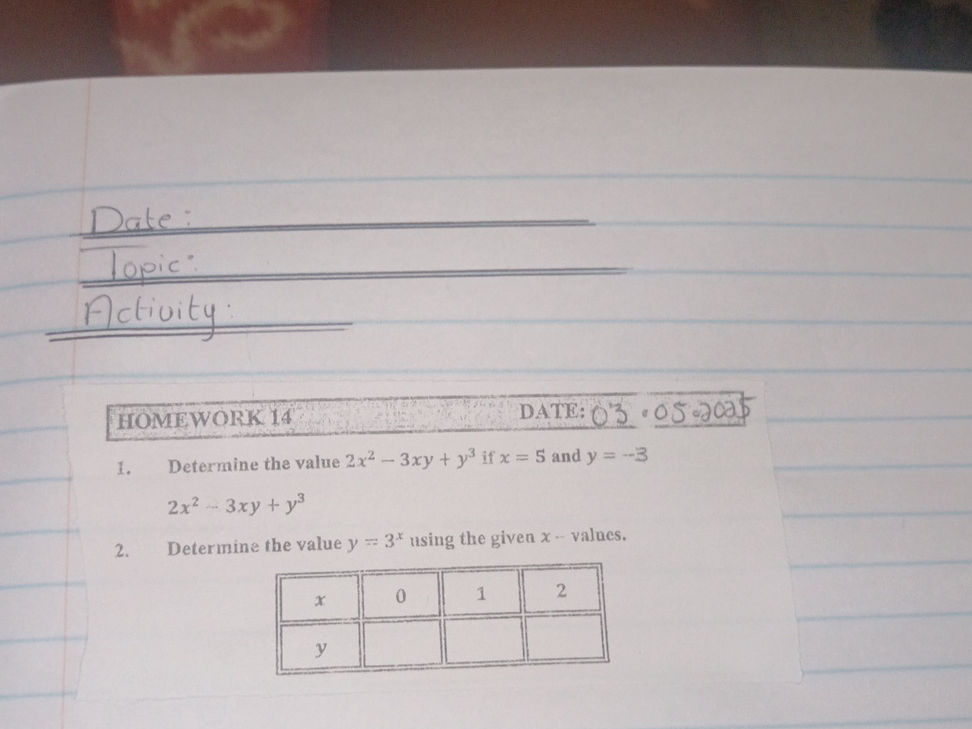 Date:
Topic:
Activity:
HOMEWORK 14 DATE: 03.05.2025
1. Determine the value 2x² − 3xy + y³ if x = 5 and y = −3
2x² − 3xy + y³
2. Determine the value y = 3ˣ using the given x − values.
x 0 1 2
y